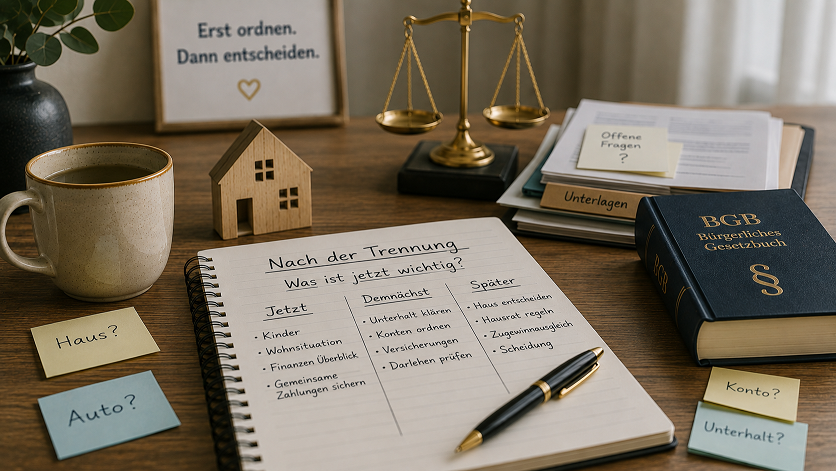 Erst ordnen.
Dann entscheiden.
Offene
Fragen
?
Unterlagen
BGB
Bürgerliches
Gesetzbuch
§
BGB
Nach der Trennung
Was ist jetzt wichtig?
Jetzt
• Kinder
• Wohnsituation
• Finanzen Überblick
• Gemeinsame
Zahlungen sichern
Demnächst
• Unterhalt klären
• Konten ordnen
• Versicherungen
• Darlehen prüfen
Später
• Haus entscheiden
• Hausrat regeln
• Zugewinnausgleich
• Scheidung
Haus?
Auto?
Konto?
Unterhalt?